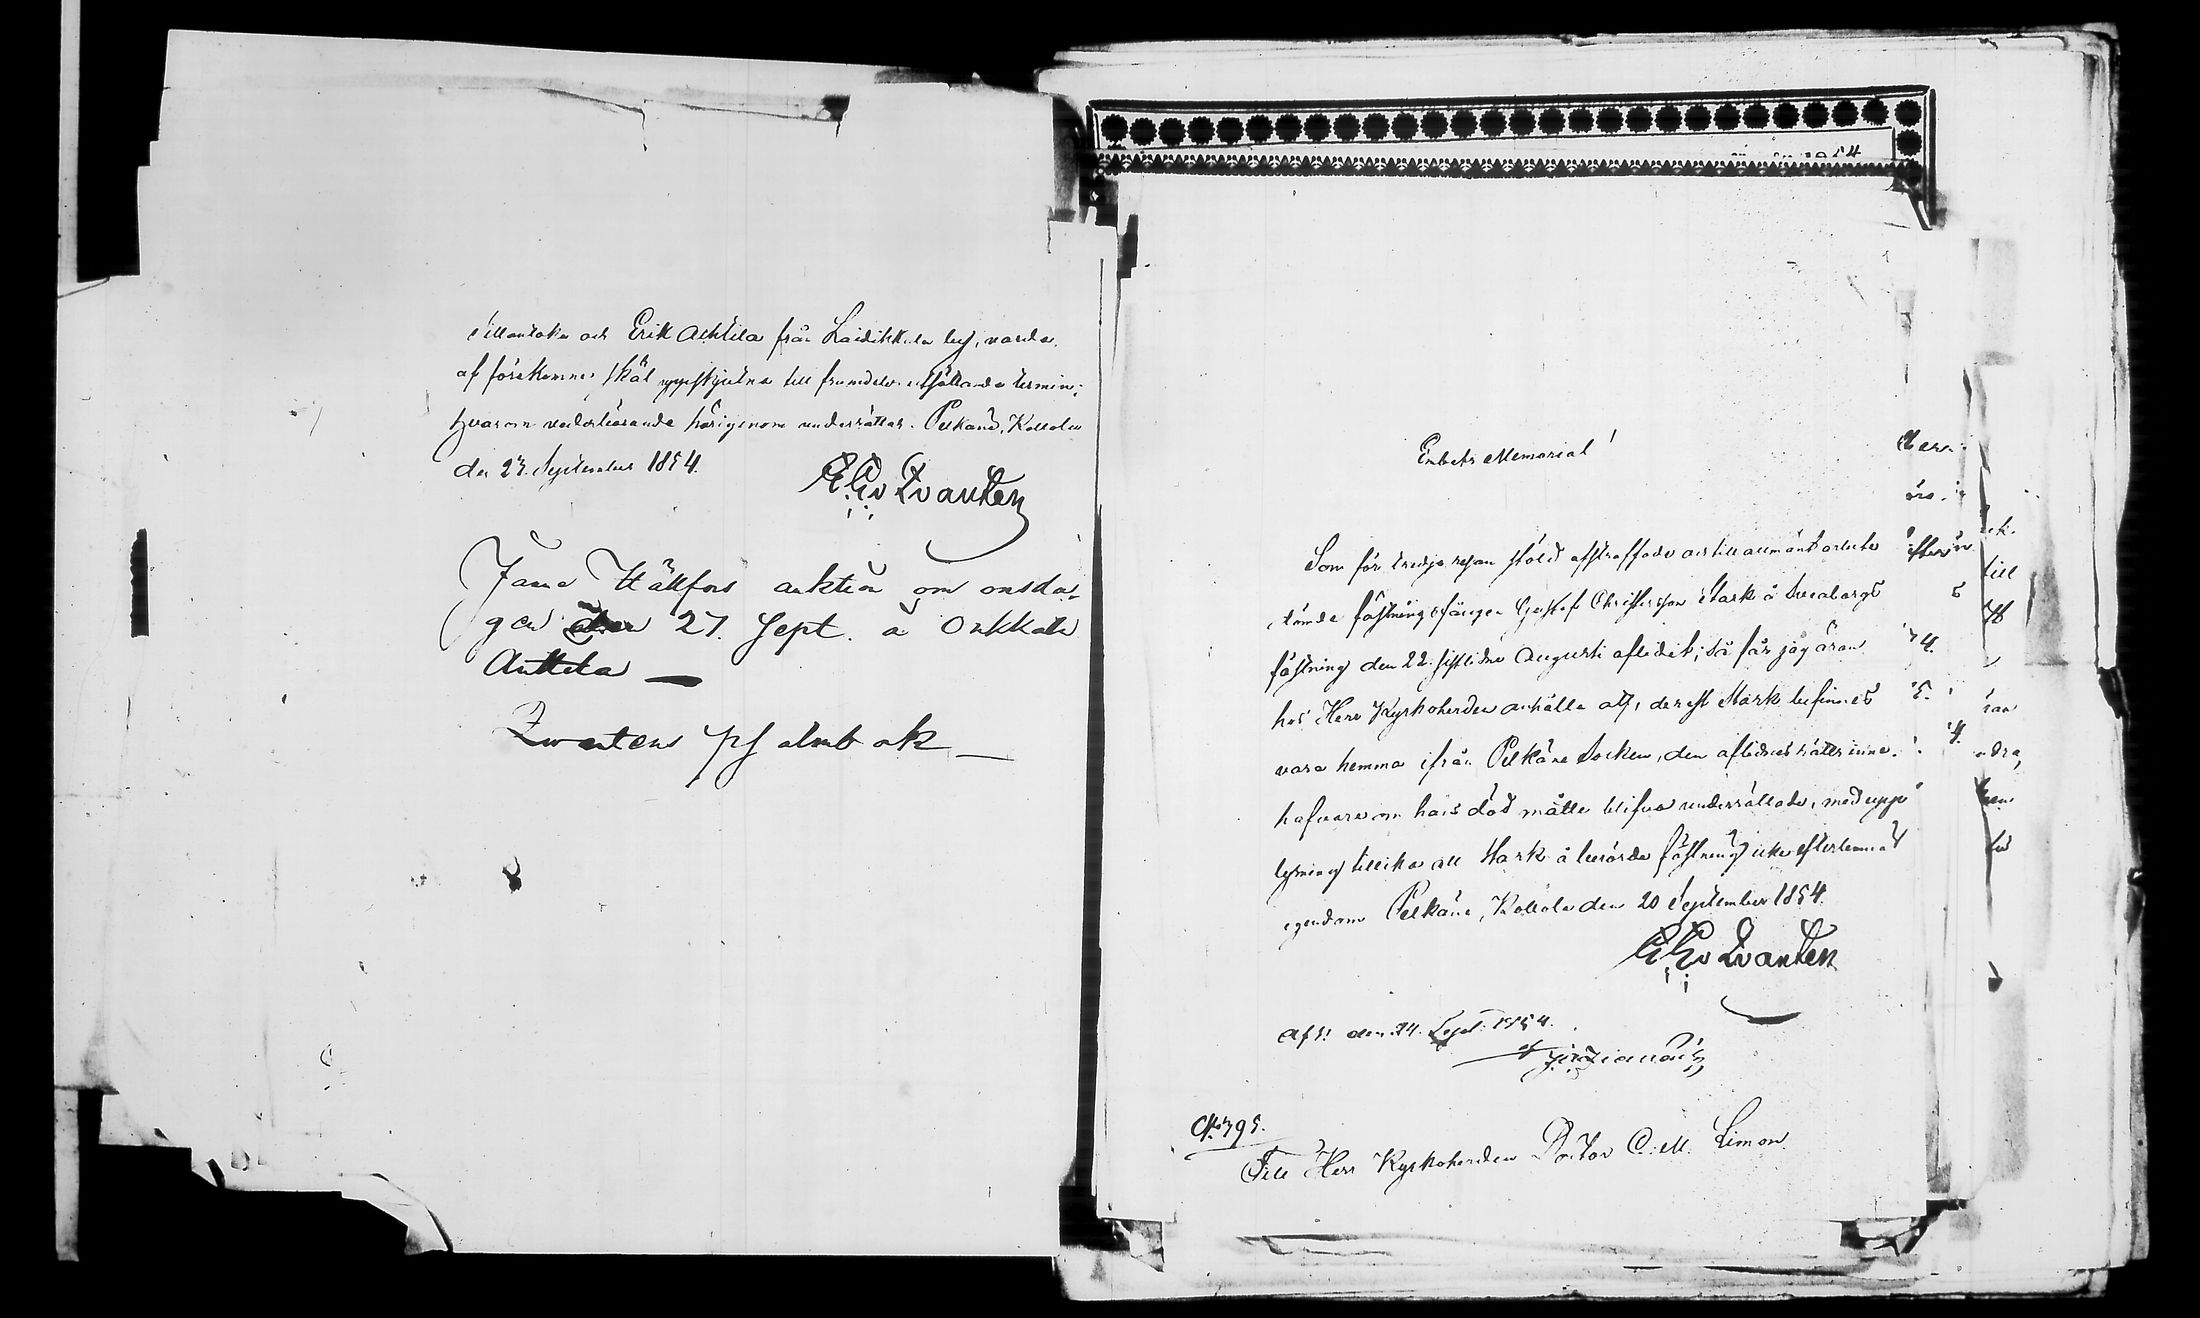 Tillantaka och Erik Achtila från Laidikkala by, varda
af förekomne skäl uppskjutna till framdeles utsättande termin;
hvarom vederbörande härigenom underrättas. Pelkäne, Kollola
den 23. September 1854.
E G v Qvanten
Janne Hällfors auktion om onsda-
gen den 27. Sept. å Onkkala
Anttila —
Qvantens psalmbok —
1854
Embets Memorial!
Som för tredje resan stöld afstraffade och till allmänt arbete
dömde fästningsfången Gustaf Christersson Stark å Sveaborgs
fästning den 22. sistlidne Augusti aflidit; så får jag äran
hos Herr Kyrkoherden anhålla att, derest Stark befinnes
vara hemma ifrån Pelkäne Socken, den aflidnes rättsinne-
hafvare om hans död måtte blifva underrättade, med upp-
lysning tillika att Stark å berörde fästning icke efterlemnat
egendom. Pelkäne, Kollola den 20 September 1854.
E G v Qvanten
Afk. den 24. Sept. 1854.
No 395.
Till Herr Kyrkoherden Doctor C. M. Limon